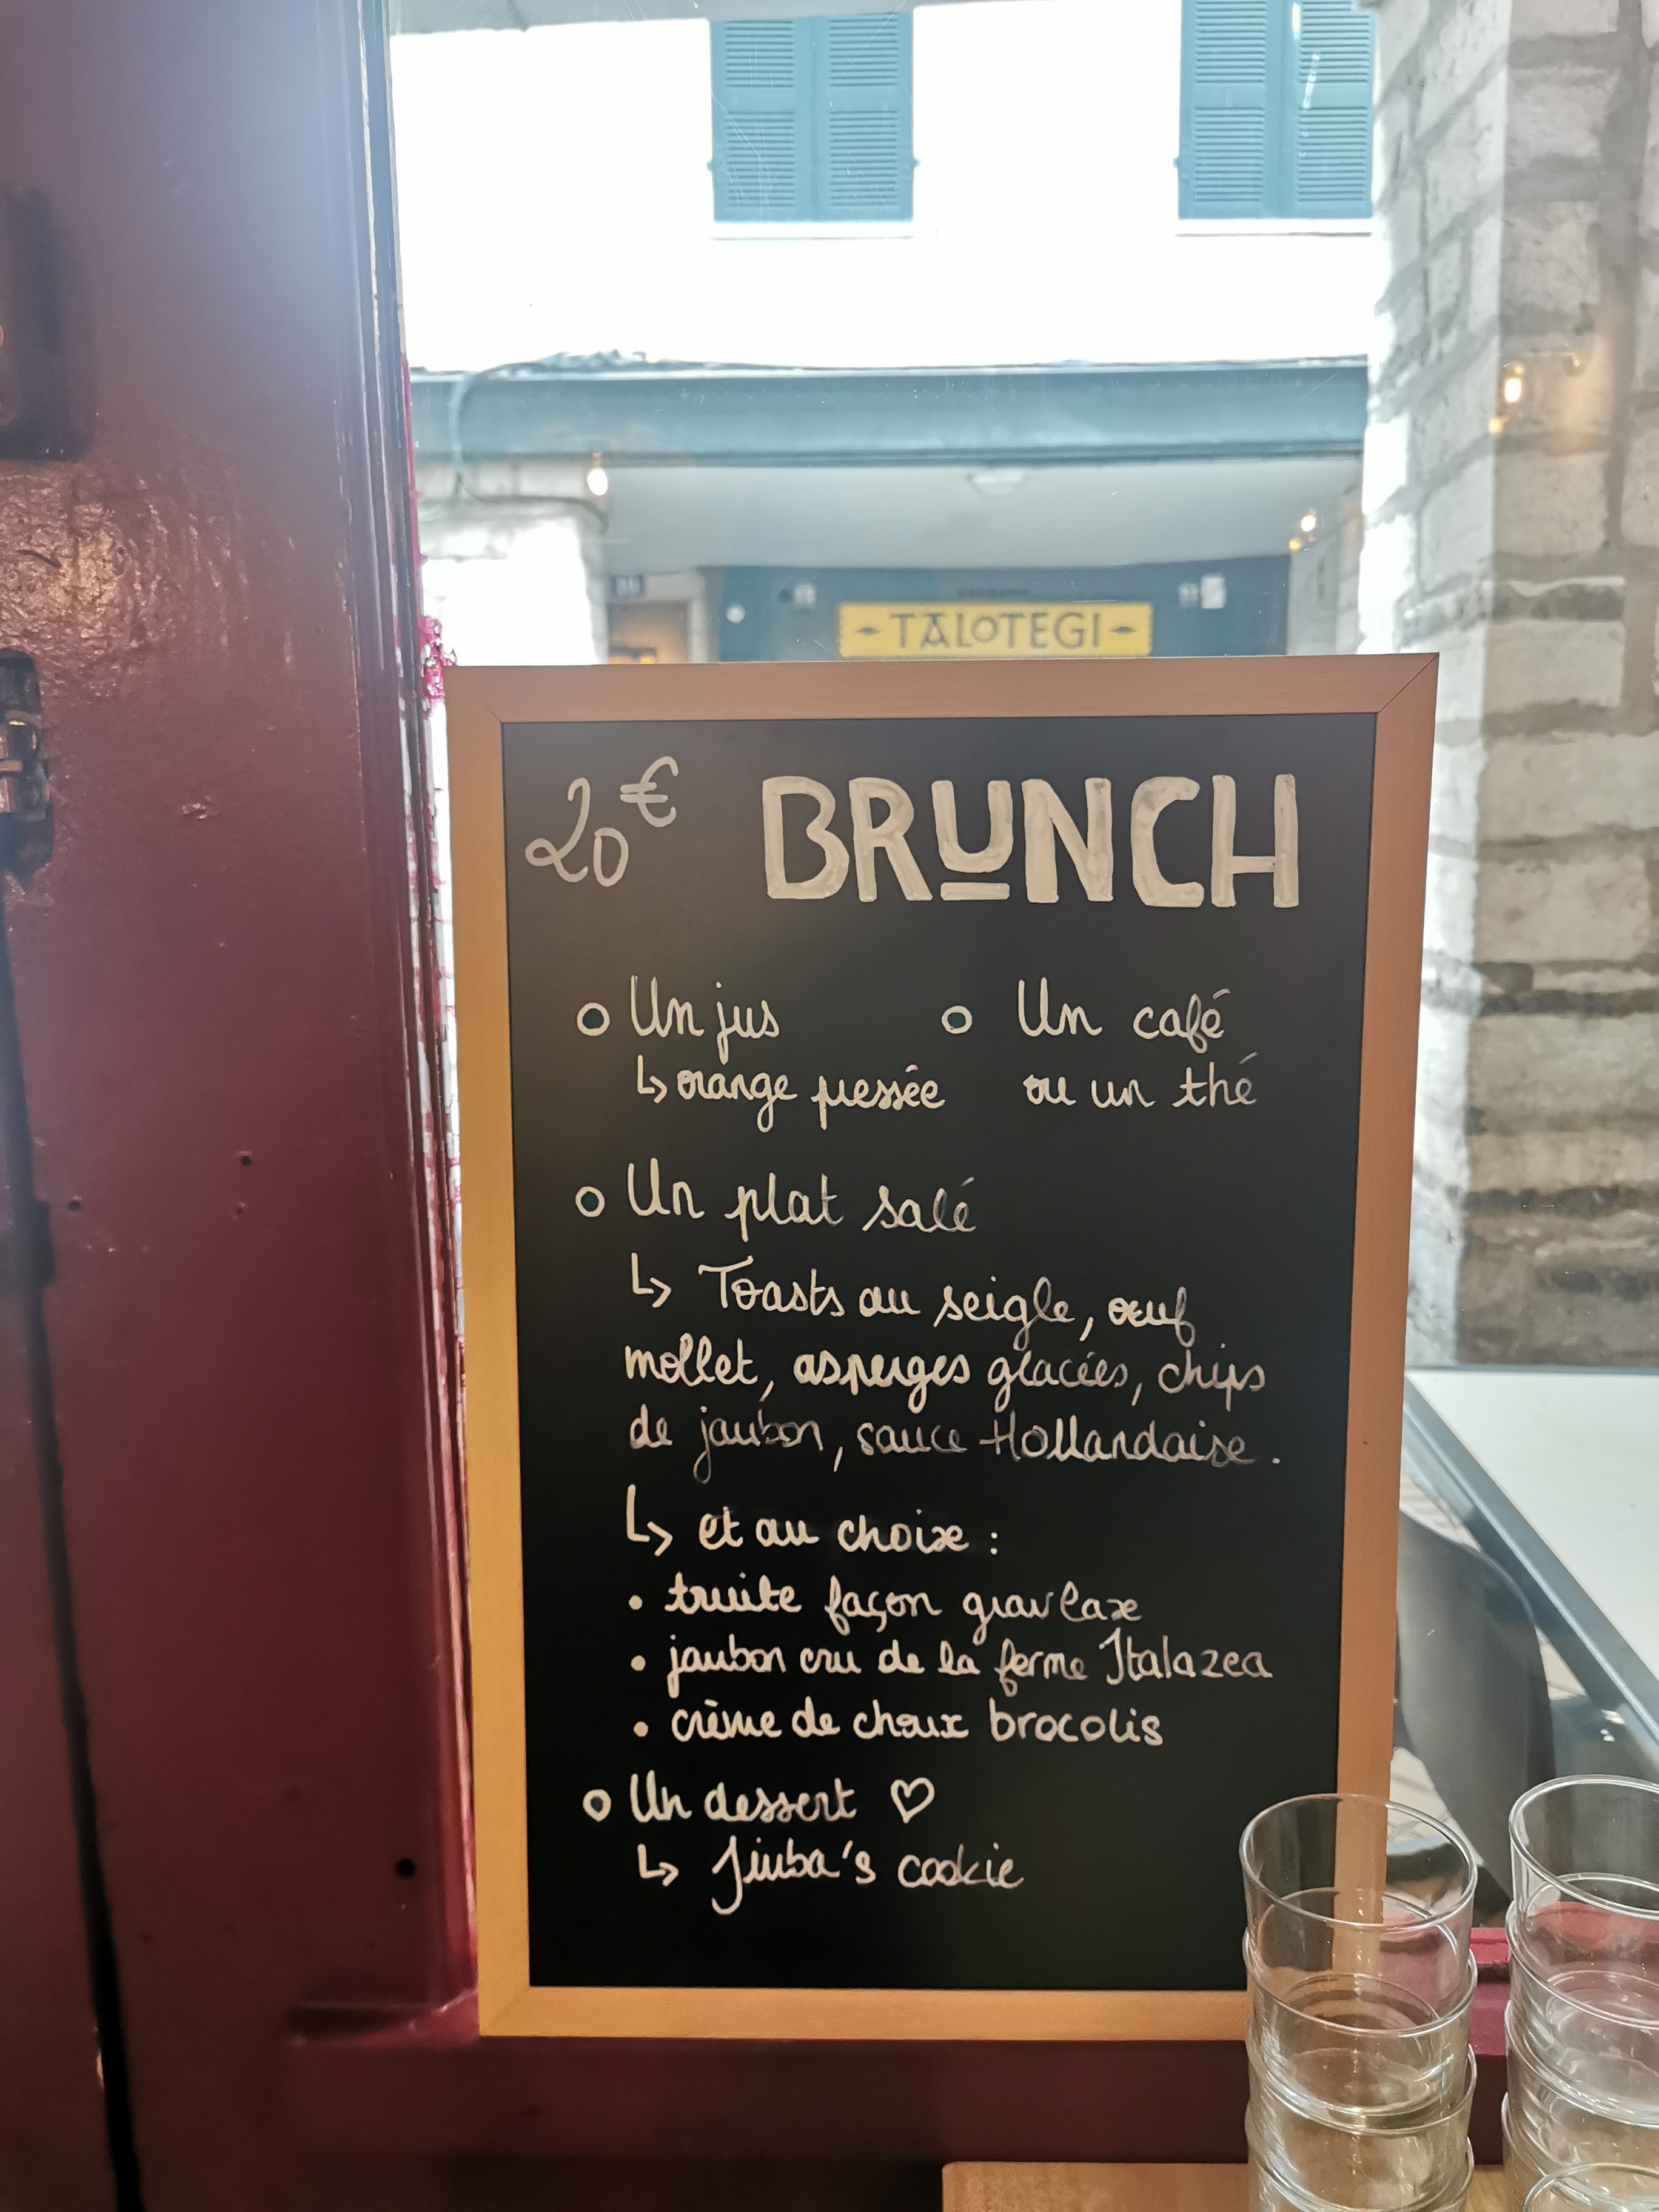 TALOTEGI
20€ BRUNCH
Un jus
↳ orange pressée
Un café
ou un thé
Un plat salé
↳ Toasts au seigle, œuf
mollet, asperges glacées, chips
de jaubon, sauce Hollandaise.
↳ et au choix :
• truite façon gravlax
• jaubon cru de la ferme Italazea
• crème de choux brocolis
Un dessert ♡
↳ Jiuba's cookie